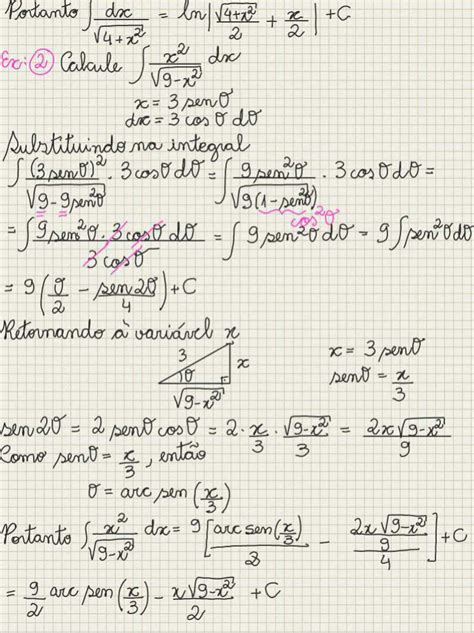 Portanto ∫ dx/√(4+x²) = ln|√(4+x²)/2 + x/2| + C
Ex: ② Calcule ∫ x²/√(9-x²) dx
x = 3 senθ
dx = 3 cosθ dθ
Substituindo na integral
∫ (3senθ)²/√(9-9sen²θ) · 3cosθdθ = ∫ 9sen²θ/√(9(1-sen²θ)) · 3cosθdθ =
cos²θ
= ∫ 9sen²θ · 3cosθdθ/3cosθ = ∫ 9sen²θdθ = 9∫sen²θdθ
= 9(θ/2 - sen2θ/4) + C
Retornando à variável x
3 x θ √(9-x²)
x = 3 senθ
senθ = x/3
sen2θ = 2 senθ cosθ = 2 · x/3 · √(9-x²)/3 = 2x√(9-x²)/9
Como senθ = x/3, então
θ = arc sen(x/3)
Portanto ∫ x²/√(9-x²) dx = 9[arc sen(x/3)/2 - (2x√(9-x²)/9)/4] + C
= 9/2 arc sen(x/3) - x√(9-x²)/2 + C